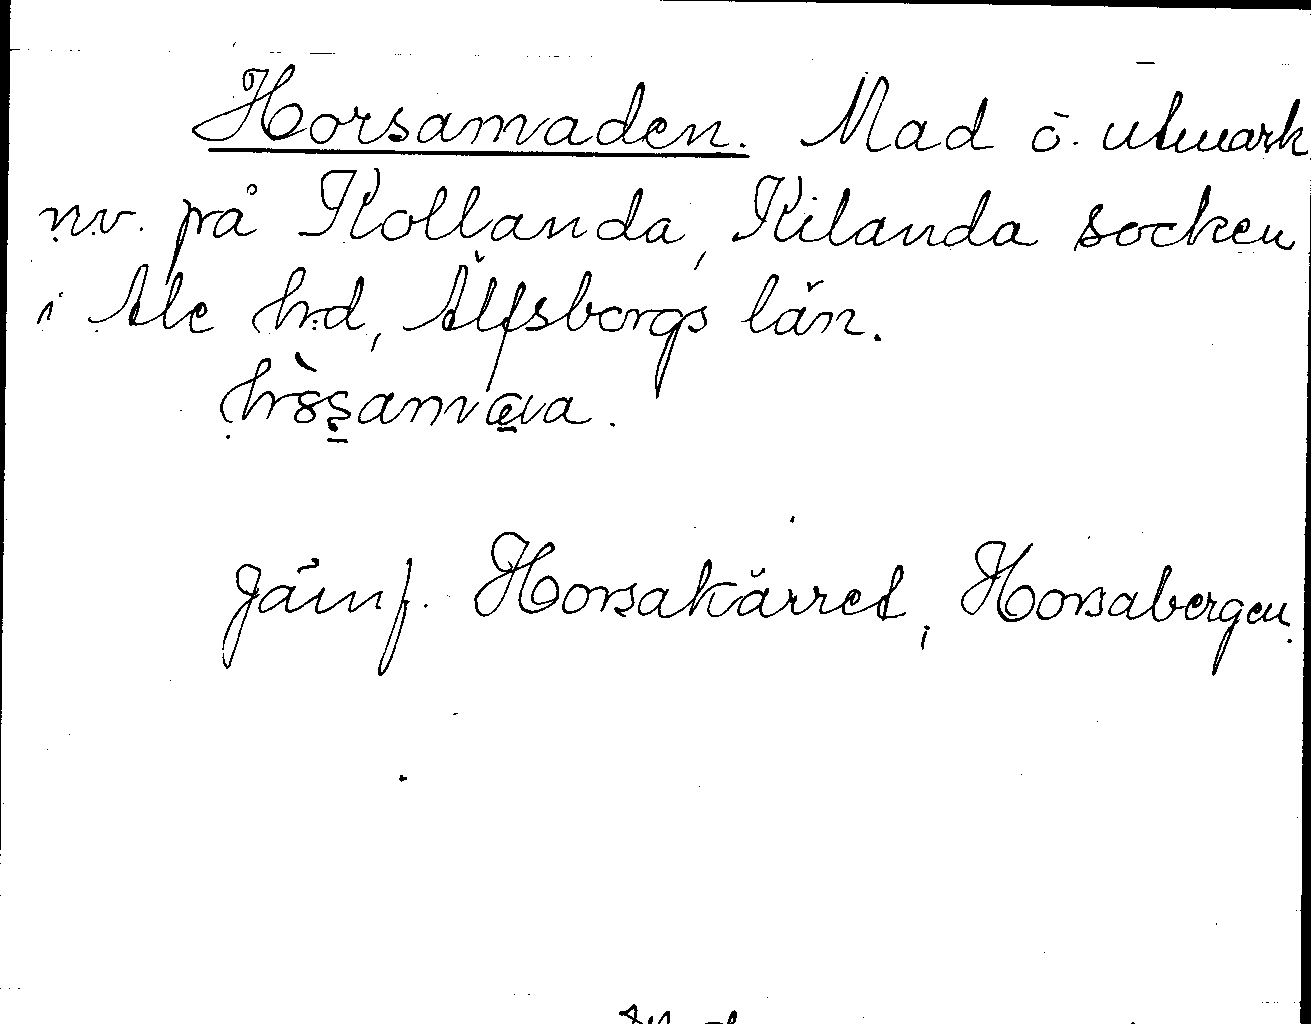 Horsamaden. Mad ö. utmark
n.v. på Kollanda, Kilanda socken
i Ale hrd, Älfsborgs län.
Jämf. Horsakärret, Horsabergen.